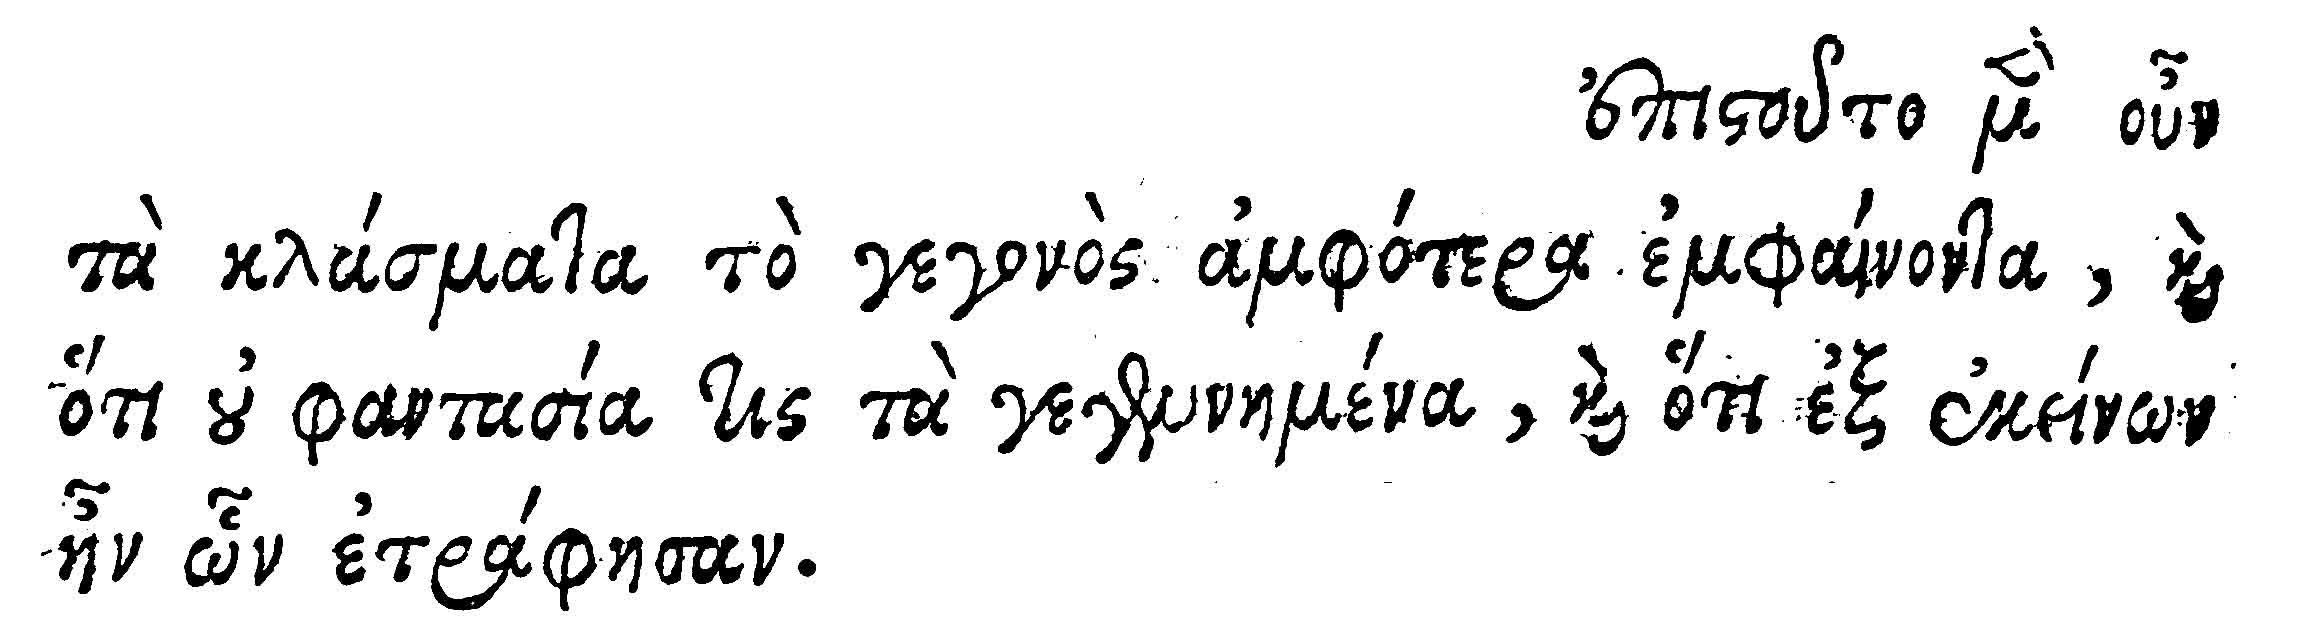 ἐπιστοῦτο μὲν οὖν
τὰ κλάσματα τὸ γεγονὸς ἀμφότερα ἐμφαίνοντα, καὶ
ὅτι οὐ φαντασία τις τὰ γεγενημένα, καὶ ὅτι ἐξ ἐκείνων
ἦν ὧν ἐτράφησαν.